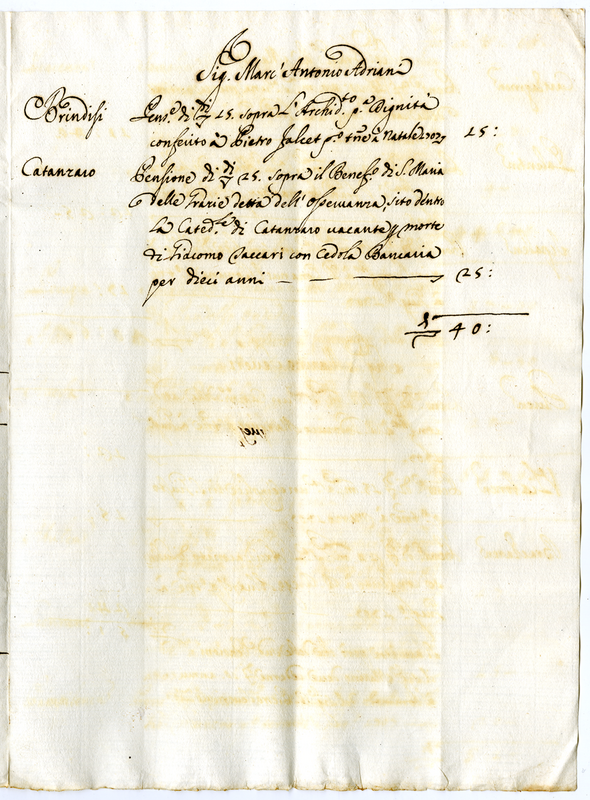 Sig. Marc' Antonio Adriani
Brindisi Pens.e di 15. sopra l'Archid.to p.a Dignità
conferito à Pietro p.o à Natale 1702 15:
Catanzaro Pensione di 25. sopra il Benef.o di S. Maria
delle Grazie detta dell' Osservanza, sito dentro
la Cated.le di Catanzaro vacante p morte
di Giacomo Saccari con Cedola Bancaria
per dieci anni — — — 25:
40: